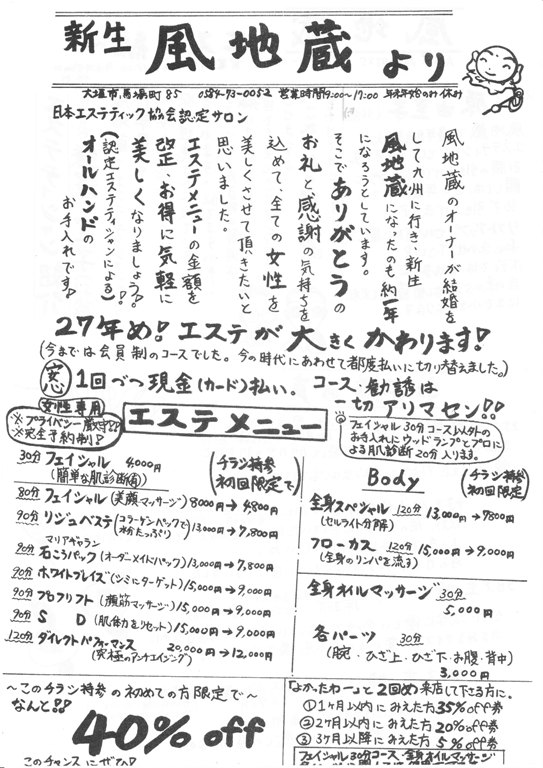 新生 風地蔵 より
大垣市馬場町85 0584-73-0052 営業時間9:00〜17:00 年末年始のみ休み
日本エステティック協会認定サロン
風地蔵のオーナーが結婚を
して九州に行き、新生
風地蔵になったのも約一年
になろうとしています。
そこでありがとうの
お礼と、感謝の気持ちを
込めて、全ての女性を
美しくさせて頂きたいと
思いました。
エステメニューの金額を
改正、お得に気軽に
美しくなりましょう!!
(認定エステティシャンによる)
オールハンドの
お手入れです♪
27年め! エステが大きくかわります!
(今までは会員制のコースでした。今の時代にあわせて都度払いに切り替えました。)
安心 1回づつ現金(カード)払い。 コース・勧誘は
一切アリマセン!!
女性専用
※プライバシー厳守!!
※完全予約制!
エステメニュー
フェイシャル30分コース以外の
お手入れにウッドランプとプロに
よる肌診断20分入ります。
30分 フェイシャル 4,000円
(簡単な肌診断値)
(チラシ持参で初回限定)
80分 フェイシャル(美顔マッサージ) 8000円→4800円
90分 リジュベステ(コラーゲンパックで粉たっぷり) 13,000円→7,800円
マリアギャラン
90分 石ころパック(オーダーメイドパック) 13,000円→7,800円
90分 ホワイトブレイズ(シミにターゲット) 15,000円→9,000円
90分 プロフリフト(顔筋マッサージ) 15,000円→9,000円
90分 S D(肌体力をリセット) 15,000円→9,000円
120分 ダイレクトパフォーマンス 20,000円→12,000円
(究極のアンチエイジング)
Body
(チラシ持参初回限定)
全身スペシャル 120分 13,000円→7800円
(セルライト分解)
フローカス 120分 15,000円→9,000円
(全身のリンパを流す)
全身オイルマッサージ 30分
5,000円
各パーツ 30分
(腕・ひざ上・ひざ下・お腹・背中)
3,000円
〜このチラシ持参の初めての方限定で〜
なんと!!
40% off
このチャンスにぜひ!
「よかったわー」と2回め来店して下さる方に。
①1ヶ月以内にみえた方35%off券
②2ヶ月以内にみえた方20%off券
③3ヶ月以降にみえた方5%off券
フェイシャル30分コース、全身オイルマッサージ